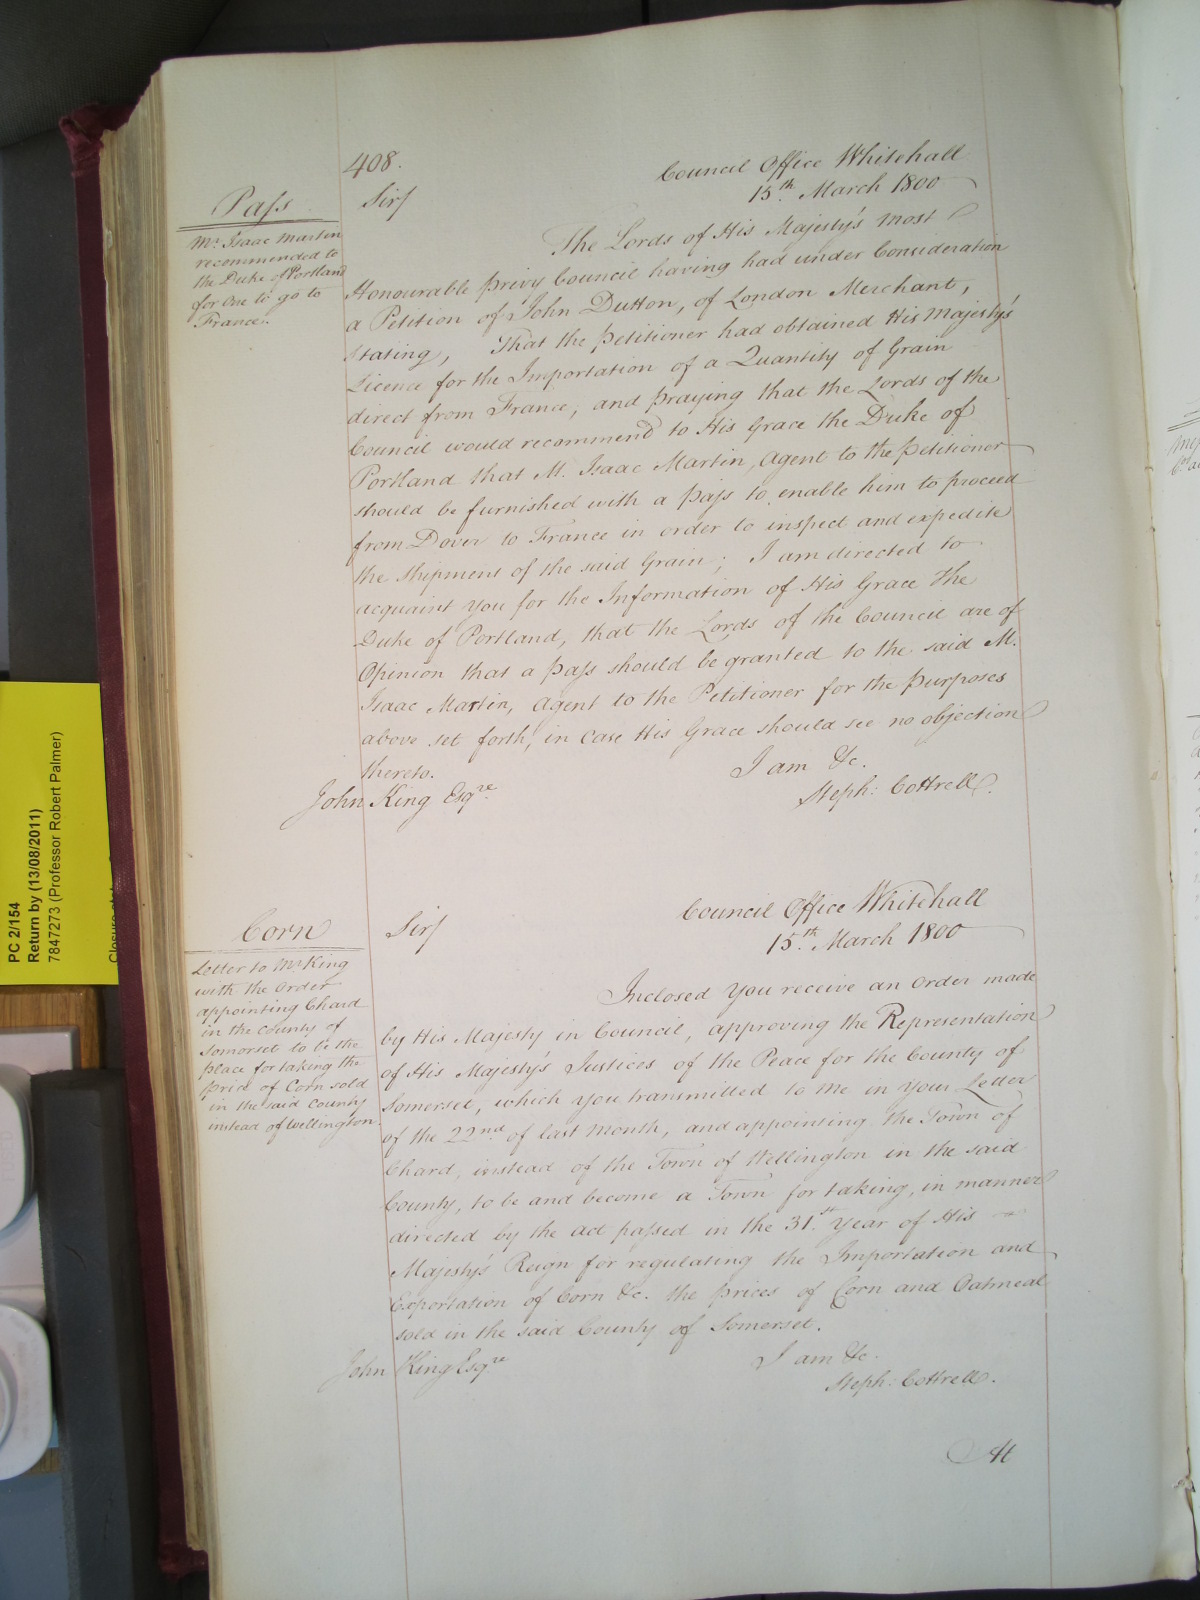 408.
Council Office Whitehall
15th. March 1800
Pass
Mr. Isaac Martin
recommended to
the Duke of Portland
for One to go to
France.
Sir/
The Lords of His Majesty's most
Honourable privy Council having had under Consideration
a Petition of John Dutton, of London Merchant,
stating, That the petitioner had obtained His Majesty's
Licence for the Importation of a Quantity of Grain
direct from France, and praying that the Lords of the
Council would recommend to His Grace the Duke of
Portland that M. Isaac Martin, agent to the petitioner
should be furnished with a pass to enable him to proceed
from Dover to France in order to inspect and expedite
the Shipment of the said Grain; I am directed to
acquaint you for the Information of His Grace The
Duke of Portland, that the Lords of the Council are of
Opinion that a pass should be granted to the said M.
Isaac Martin, agent to the Petitioner for the purposes
above set forth, in case His Grace should see no objection
thereto.
I am &c.
John King Esqre.
Steph: Cottrell.
Council Office Whitehall
15th. March 1800
Corn
Letter to Mr King
with the Order
appointing Chard
in the County of
Somerset to be the
place for taking the
price of Corn sold
in the said County
instead of Wellington
Sir/
Inclosed you receive an Order made
by His Majesty in Council, approving the Representation
of His Majesty's Justices of the Peace for the County of
Somerset, which you transmitted to me in your Letter
of the 22nd. of last Month, and appointing the Town of
Chard, instead of the Town of Wellington in the said
County, to be and become a Town for taking, in manner
directed by the act passed in the 31.st year of His
Majesty's Reign for regulating the Importation and
Exportation of Corn &c. the prices of Corn and Oatmeal
sold in the said County of Somerset.
I am &c.
John King Esqre
Steph: Cottrell.
At
PC 2/154
Return by (13/08/2011)
7847273 (Professor Robert Palmer)